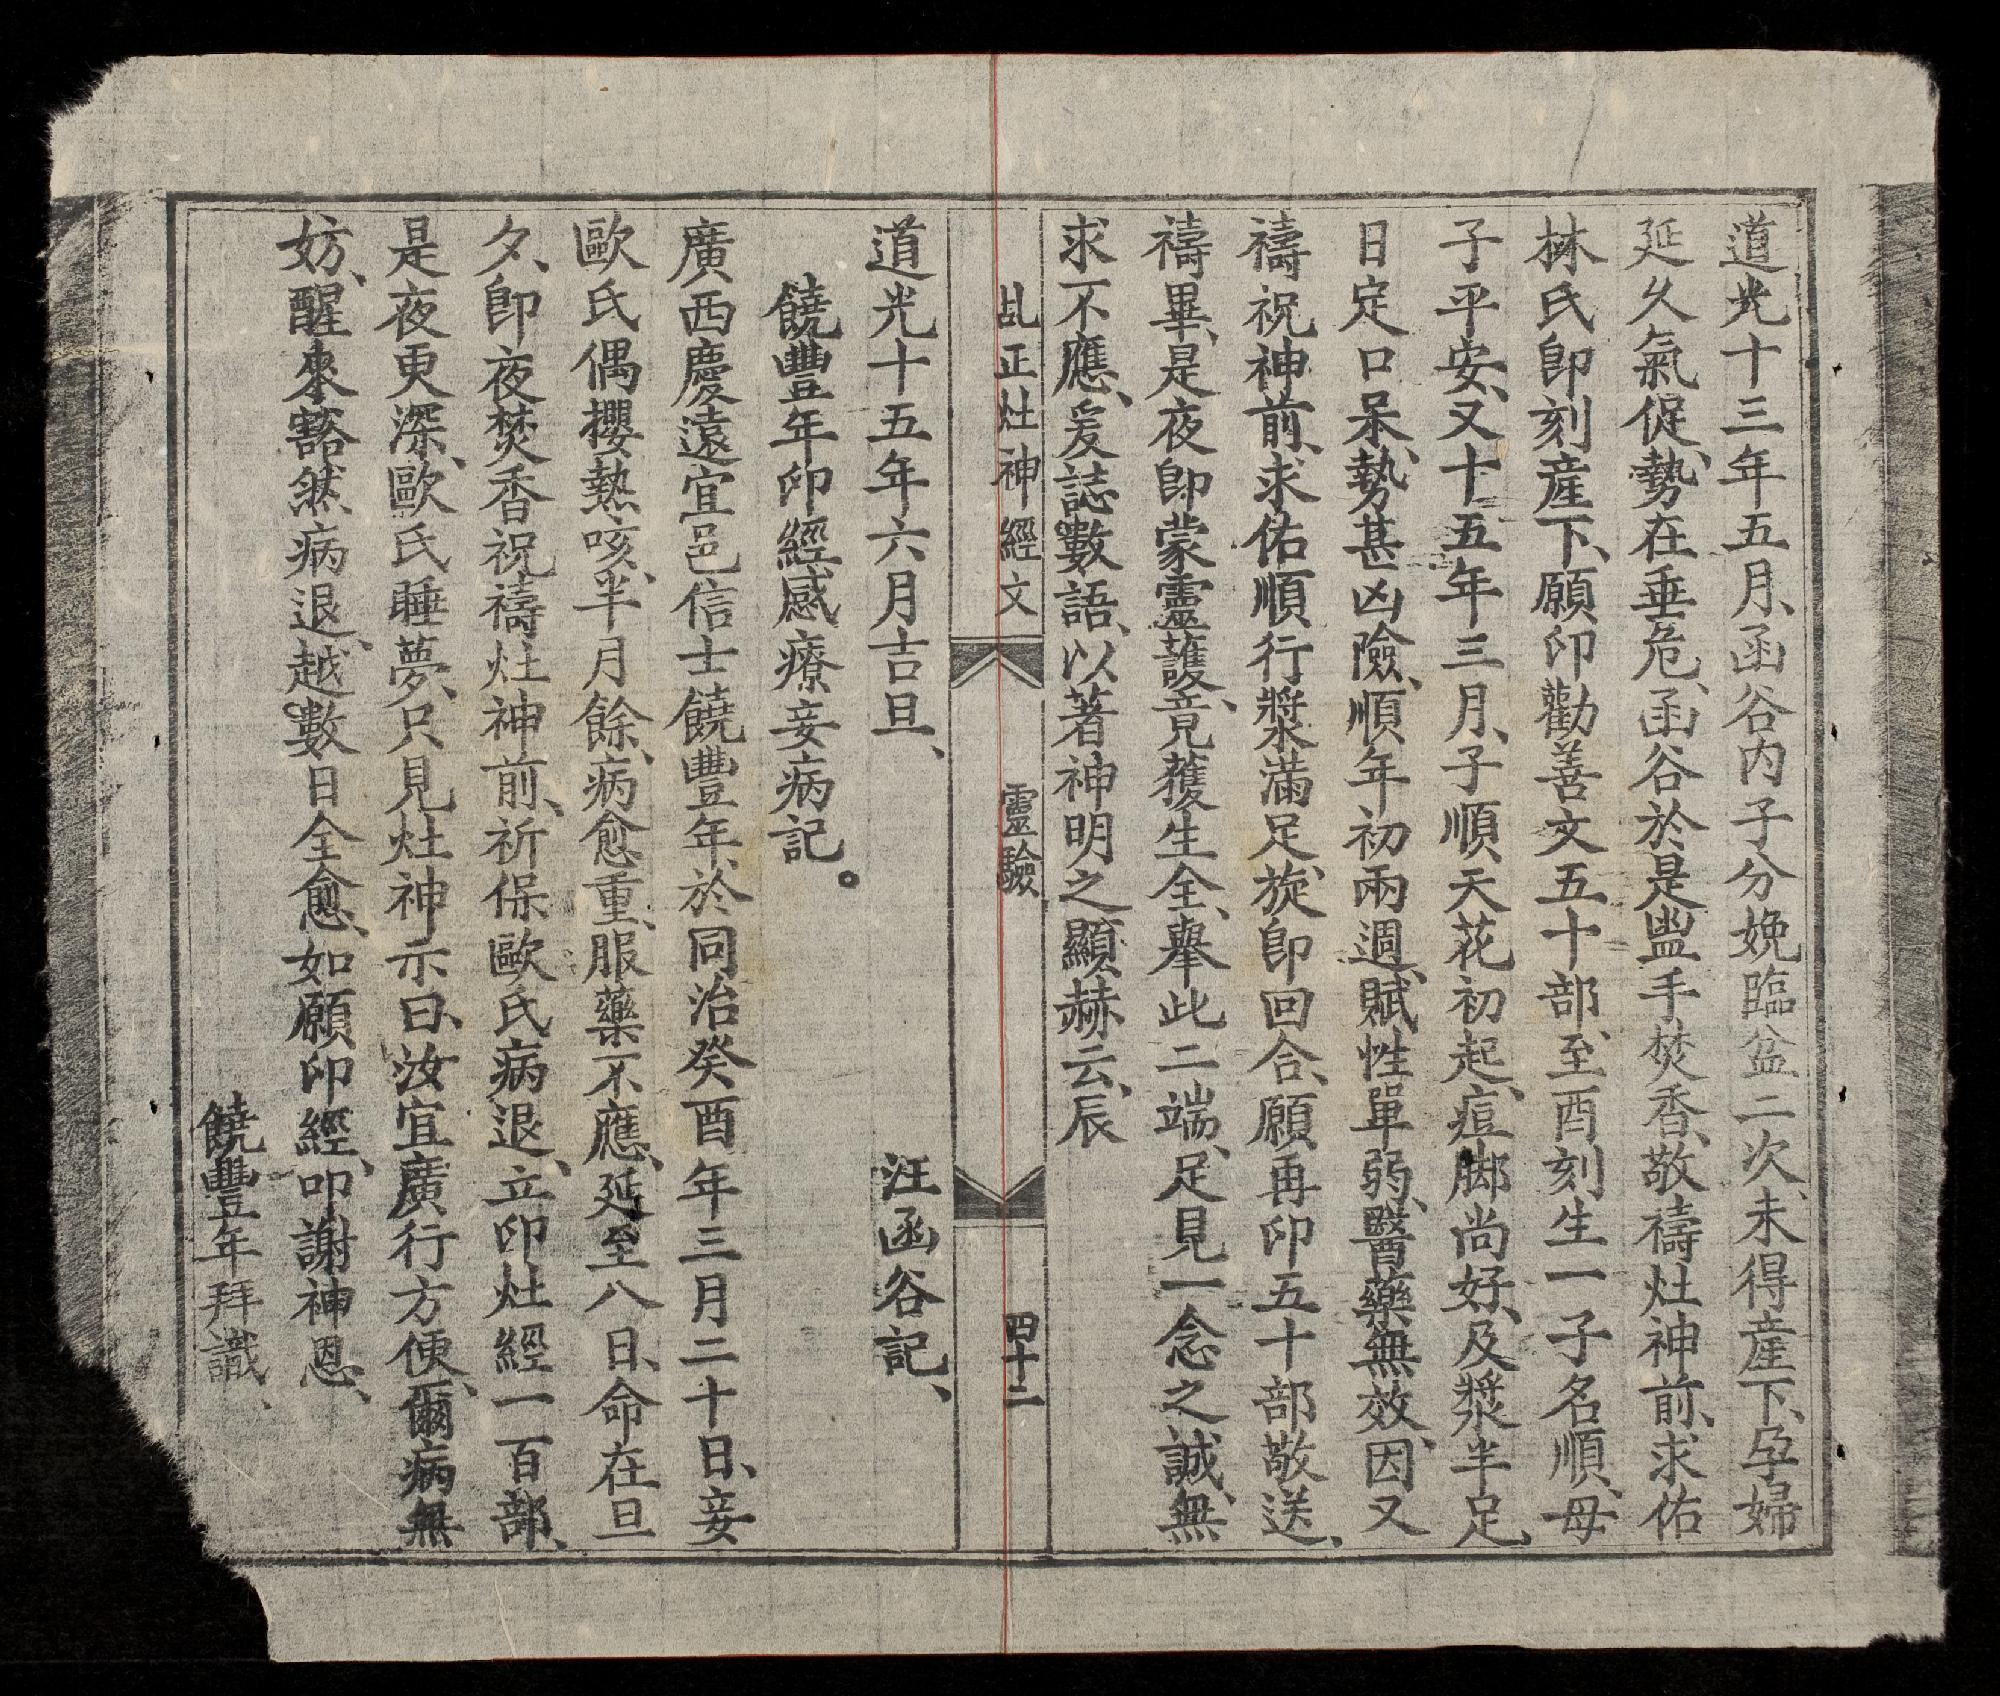 道光十三年五月、函谷内子分娩臨盆二次、未得產下、孕婦
延久氣促、勢在垂危、函谷於是盥手焚香、敬禱灶神前、求佑
林氏卽刻產下、願印勸善文五十部、至酉刻生一子名順、母
子平安、又十五年三月、子順天花初起、痘脚尚好、及漿半足
日定口呆、勢甚凶險、順年初兩週、賦性單弱、醫藥無效、因又
禱祝神前、求佑順行漿滿足、旋卽回合、願再印五十部敬送、
禱畢、是夜卽蒙靈護、竟獲生全、舉此二端、足見一念之誠、無
求不應、爰誌數語、以著神明之顯赫云、辰
乩正灶神經文 靈驗 四十二
道光十五年六月吉旦、 汪函谷記、
饒豐年印經感療妾病記。
廣西慶遠宜邑信士饒豐年、於同治癸酉年三月二十日、妾
歐氏偶攖熱咳、半月餘、病愈重、服藥不應、延至八日、命在旦
夕、卽夜焚香祝禱灶神前、祈保歐氏病退、立印灶經一百部、
是夜更深、歐氏睡夢、只見灶神示曰、汝宜廣行方便、爾病無
妨、醒來豁然病退、越數日全愈、如願印經、叩謝神恩、
饒豐年拜識、